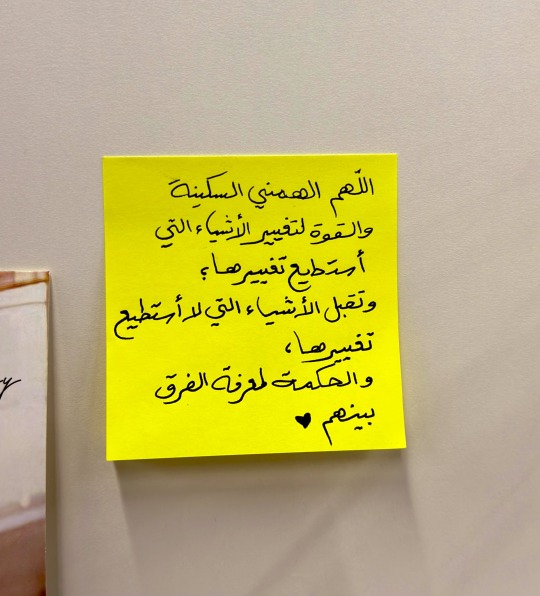 اللّهم الهمني السكينة
والقوة لتغيير الأشياء التي
أستطيع تغييرها؛
وتقبل الأشياء التي لا أستطيع
تغييرها،
والحكمة لمعرفة الفرق
بينهم ♥